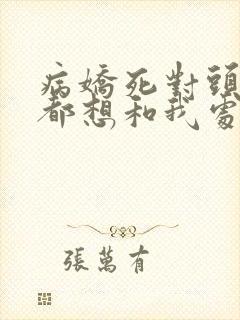 病嬌死對頭
都想和我處
張萬有